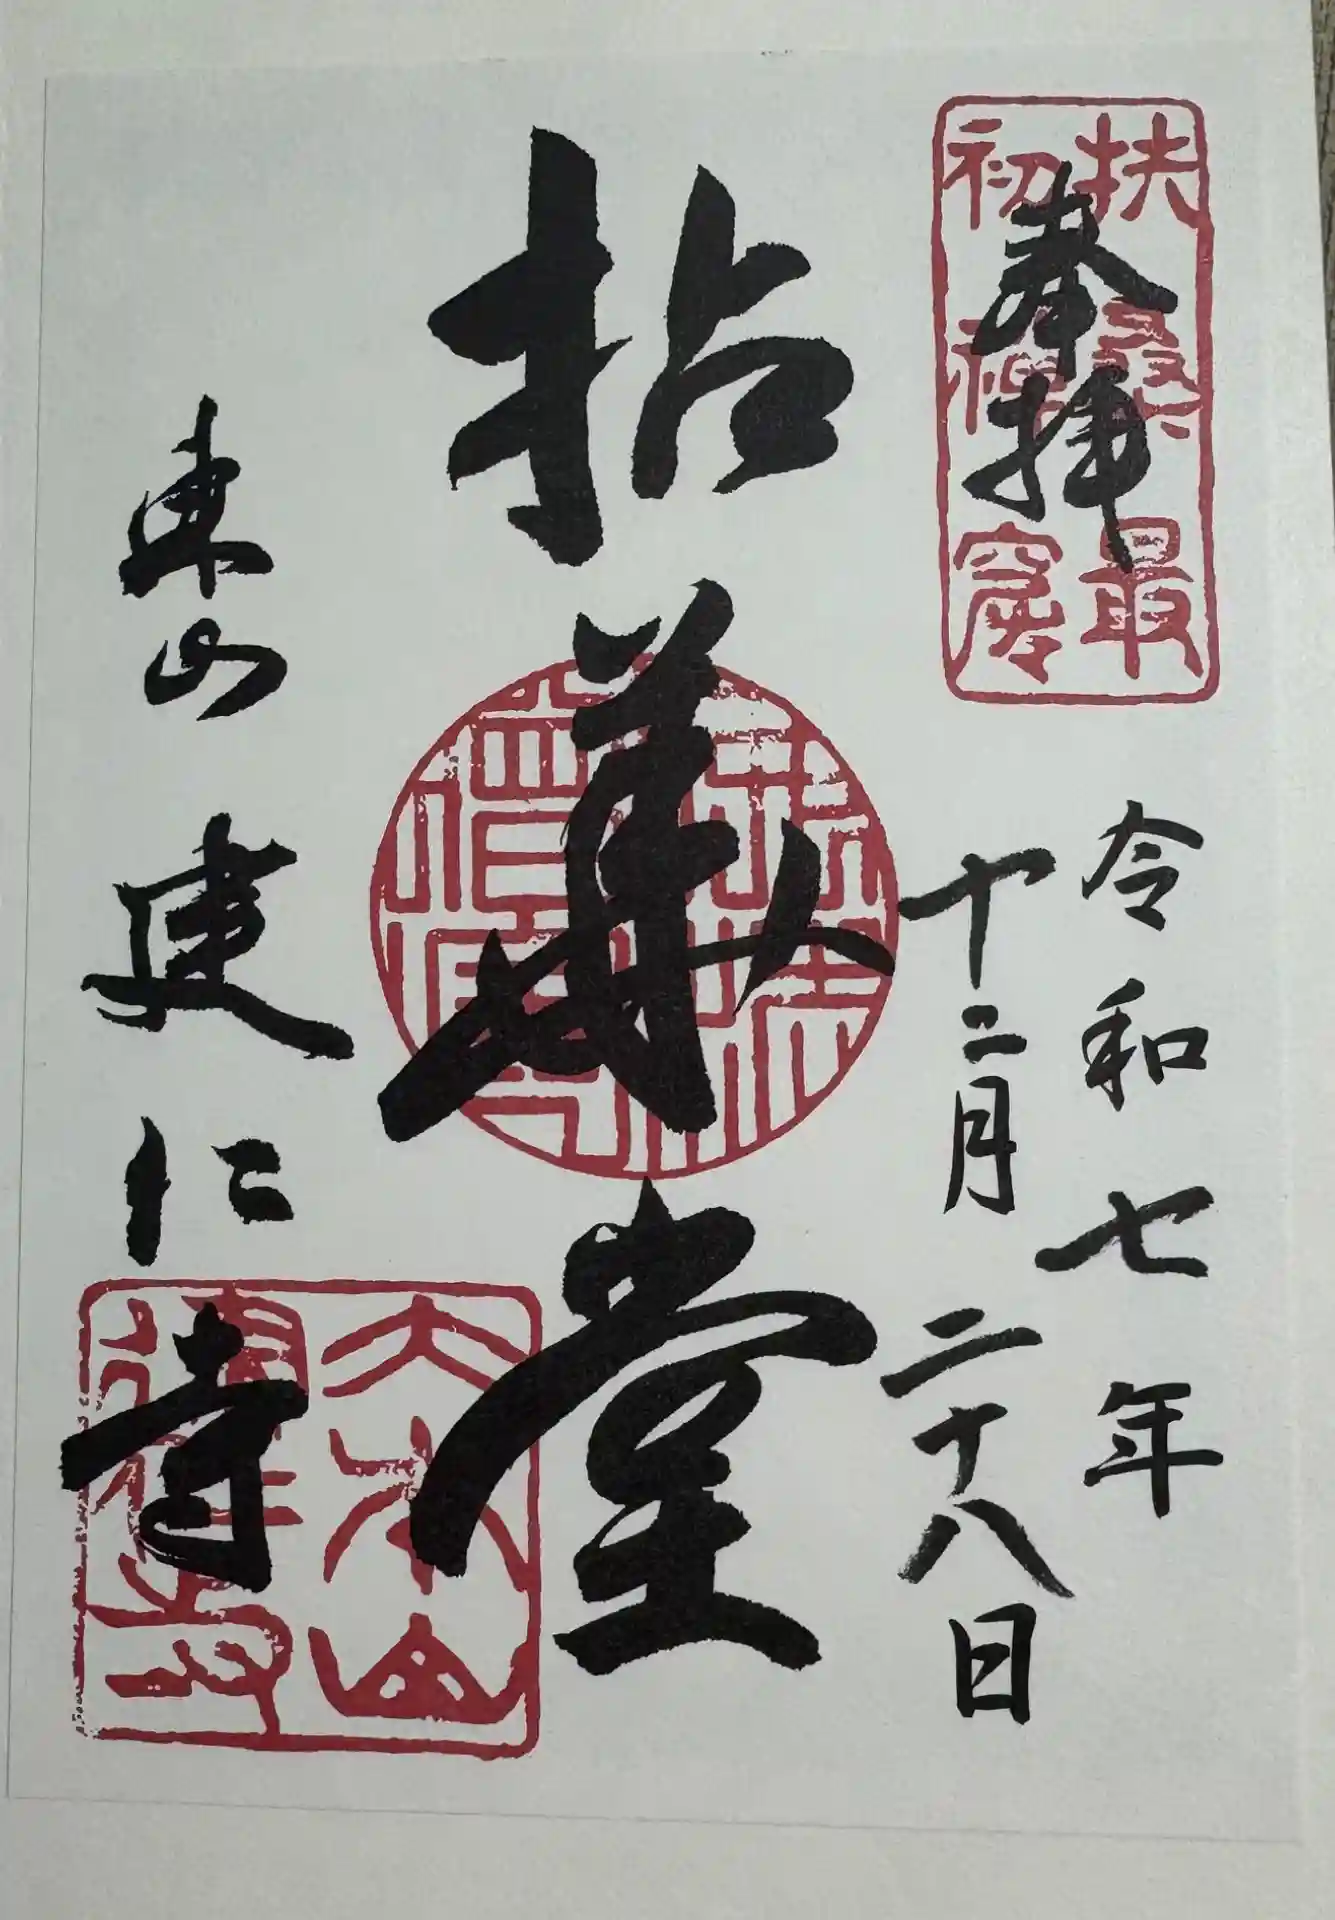 扶桑最
初禅窟
奉拝
令和七年
十二月二十八日
拈華堂
東山 建仁寺
大本山
建仁寺